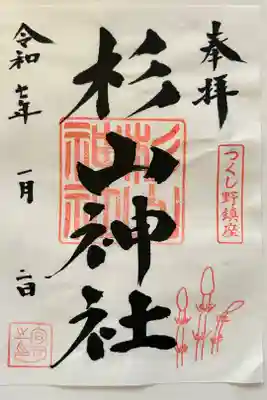 奉拝
つくし野鎮座
杉山神社
杉山神社
令和七年
一月
二日